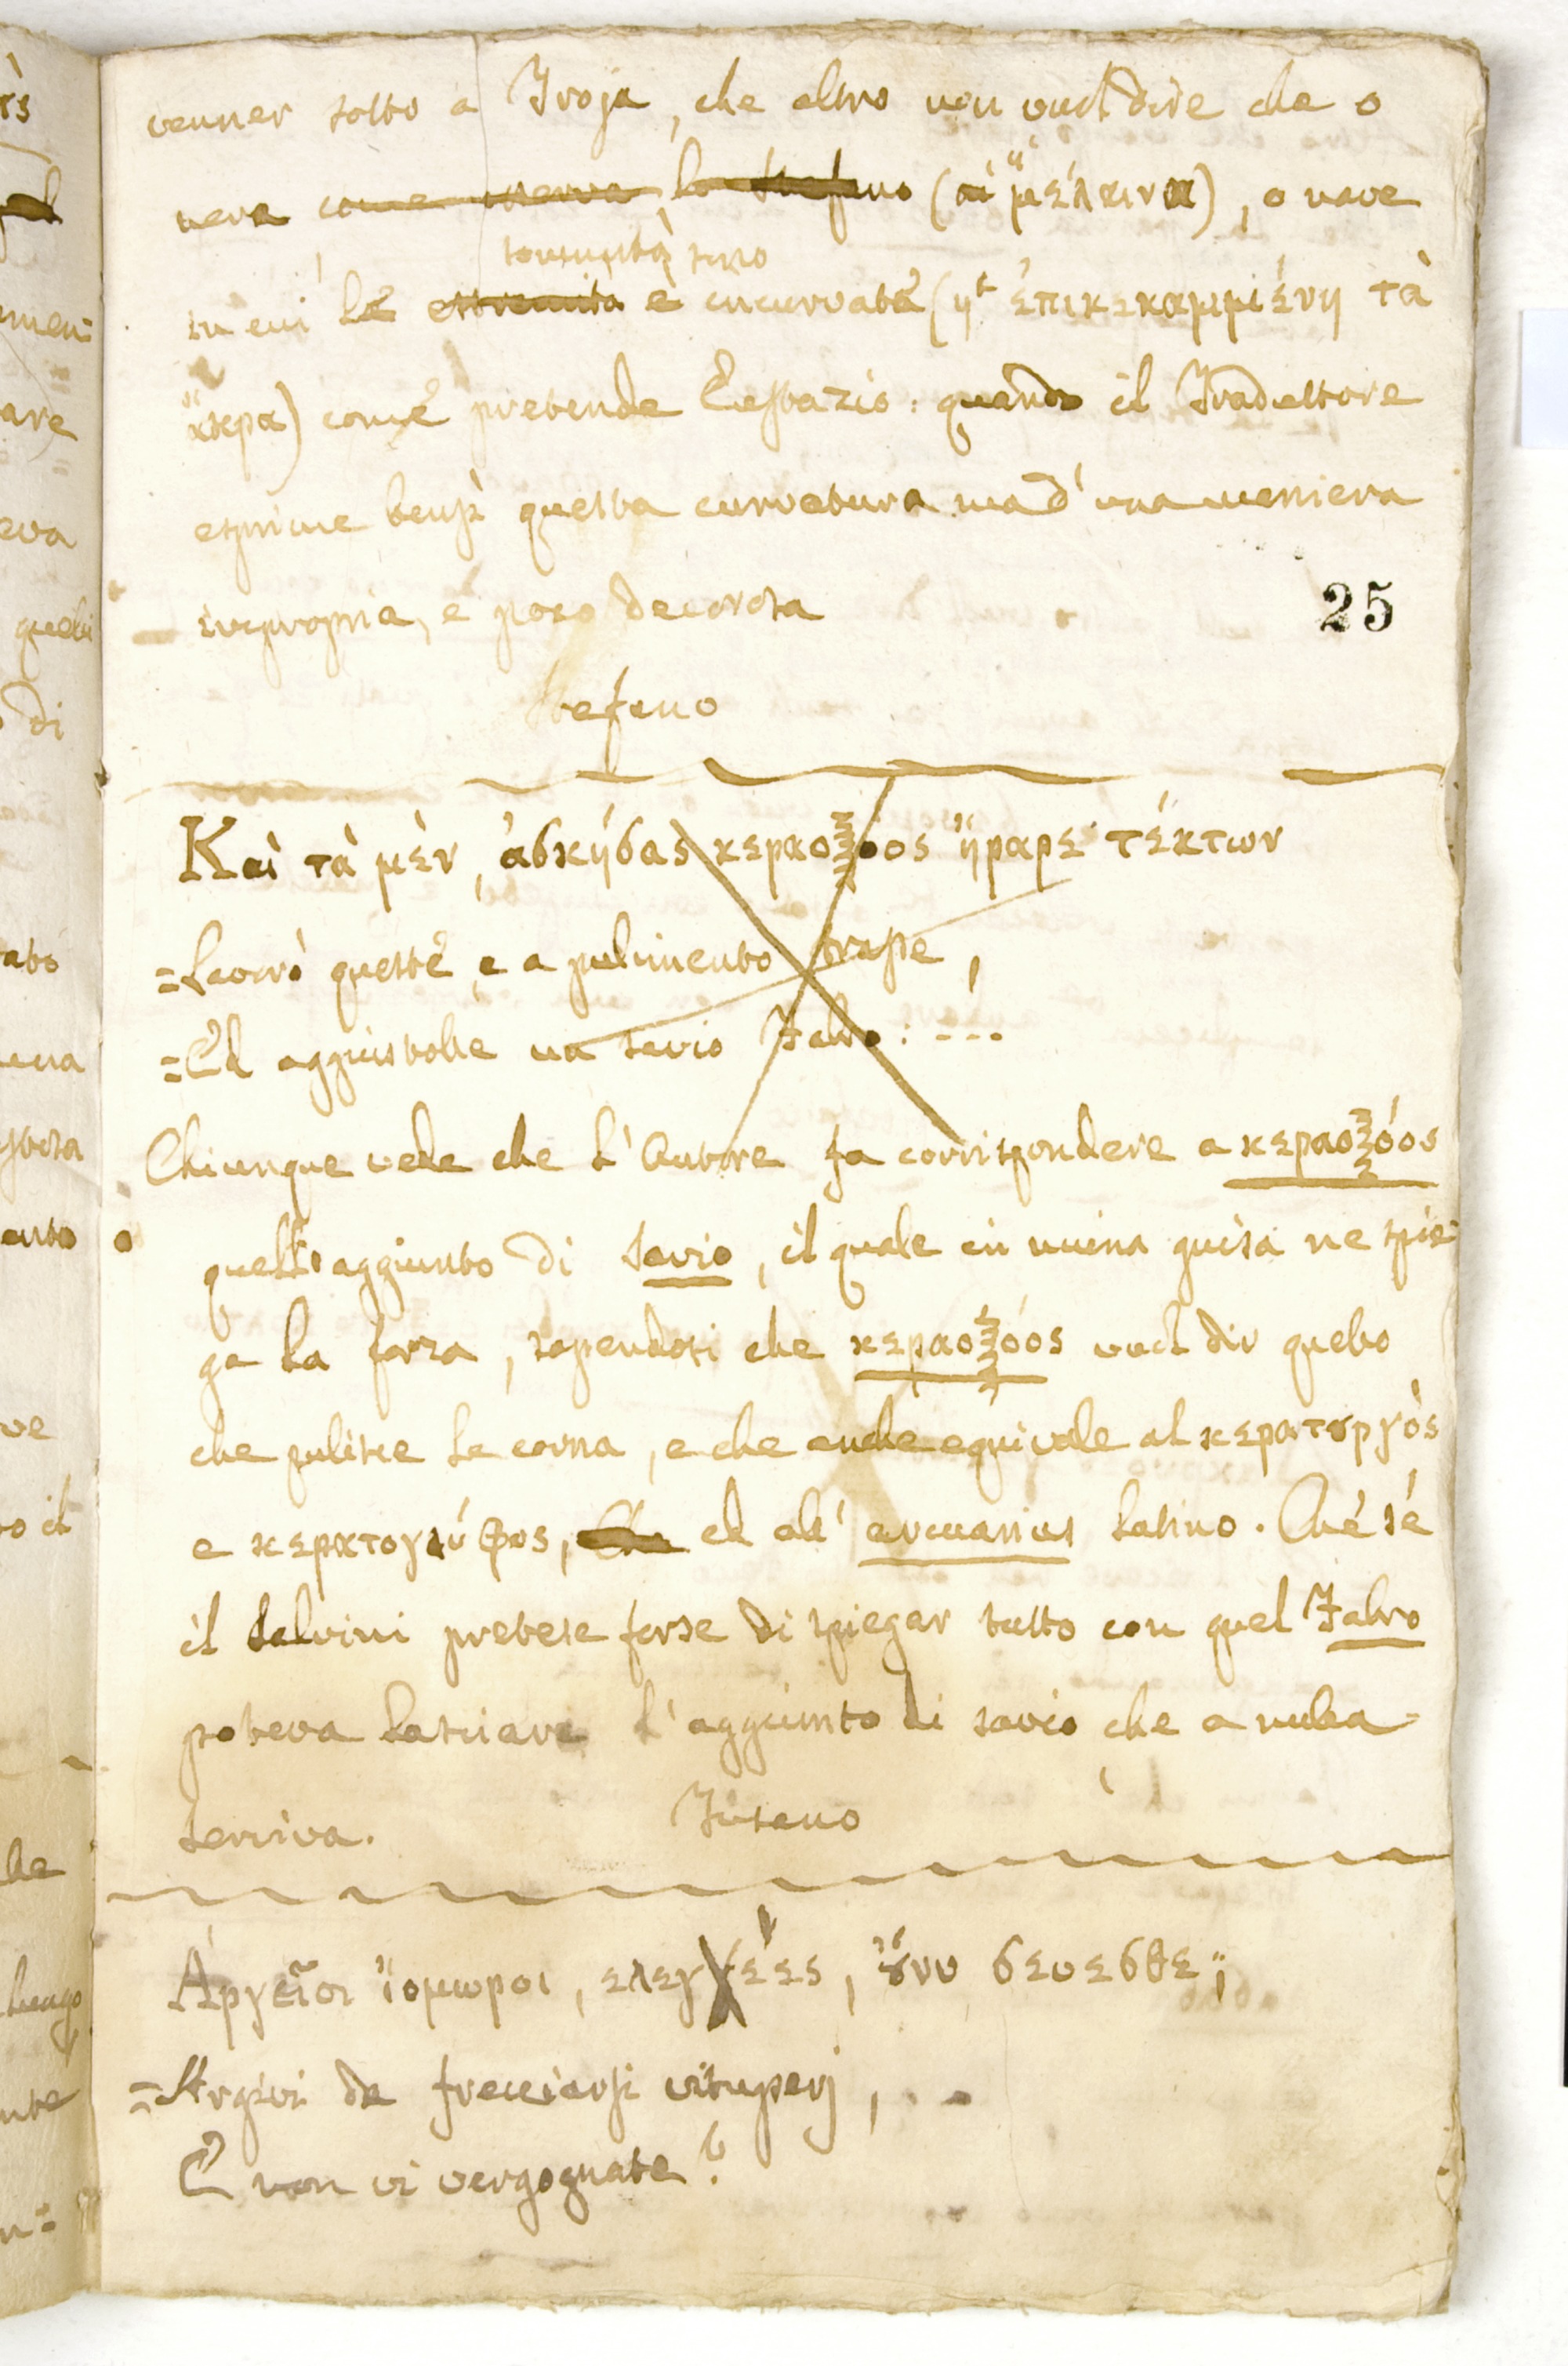 venner sotto a Troja, che altro non vuol dire che o
nera come nerva, lo Stefano (αἱ μέλαιναι), o nave
sommità sono
in cui le estremità è incurvate (ἡ ἐπικεκαμμένη τὰ
ἄκρα) come pretende Eustazio: quando il Traduttore
esprime bensì questa curvatura ma d'una maniera
impropria, e poco decorosa
25
Stefano
Καὶ τὰ μὲν, ἀσκήσας κεραοξόος ἤραρε τέκτων
=Lavorò queste, e a pulimento trasse,
=Ed aggiustolle un savio Fabro: ---
Chiunque vede che l'Autore fa corrispondere a κεραοξόος
quell'aggiunto di Savio, il quale in niuna guisa ne spie-
ga la forza, sapendosi che κεραοξόος vuol dir quello
che pulisce le corna, e che anche equivale al κερατȣργὸς
e κερατογλύφος, Che ed all' arcuarius latino. Chè se
il Salvini pretese forse di spiegar tutto con quel Fabro
poteva lasciare l'aggiunto di savio che a nulla
serviva.
Fusano
Ἀργεῖοι ἰόμωροι, ελεγχέες, ȣ̓́νυ σεϋεσθε;
=Argivi da frecciarsi vituperj, . -
E non vi vergognate?